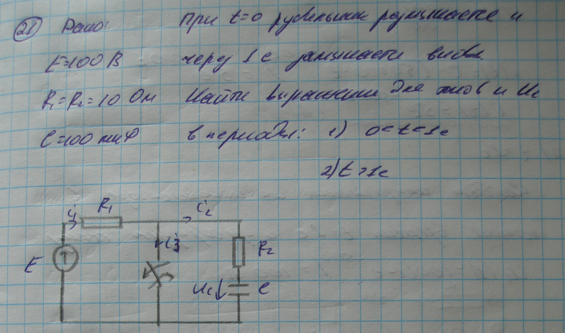 21) Дано: При t=0 рубильник размыкается и
E=100 В через 1 с замыкается вновь.
R₁=R₂=10 Ом Найти выражения для токов и Uc
C=100 мкФ в периоды: 1) 0<t<1c
2) t>1c
i₁ R₁ i₂
i₃
E R₂
Uc C